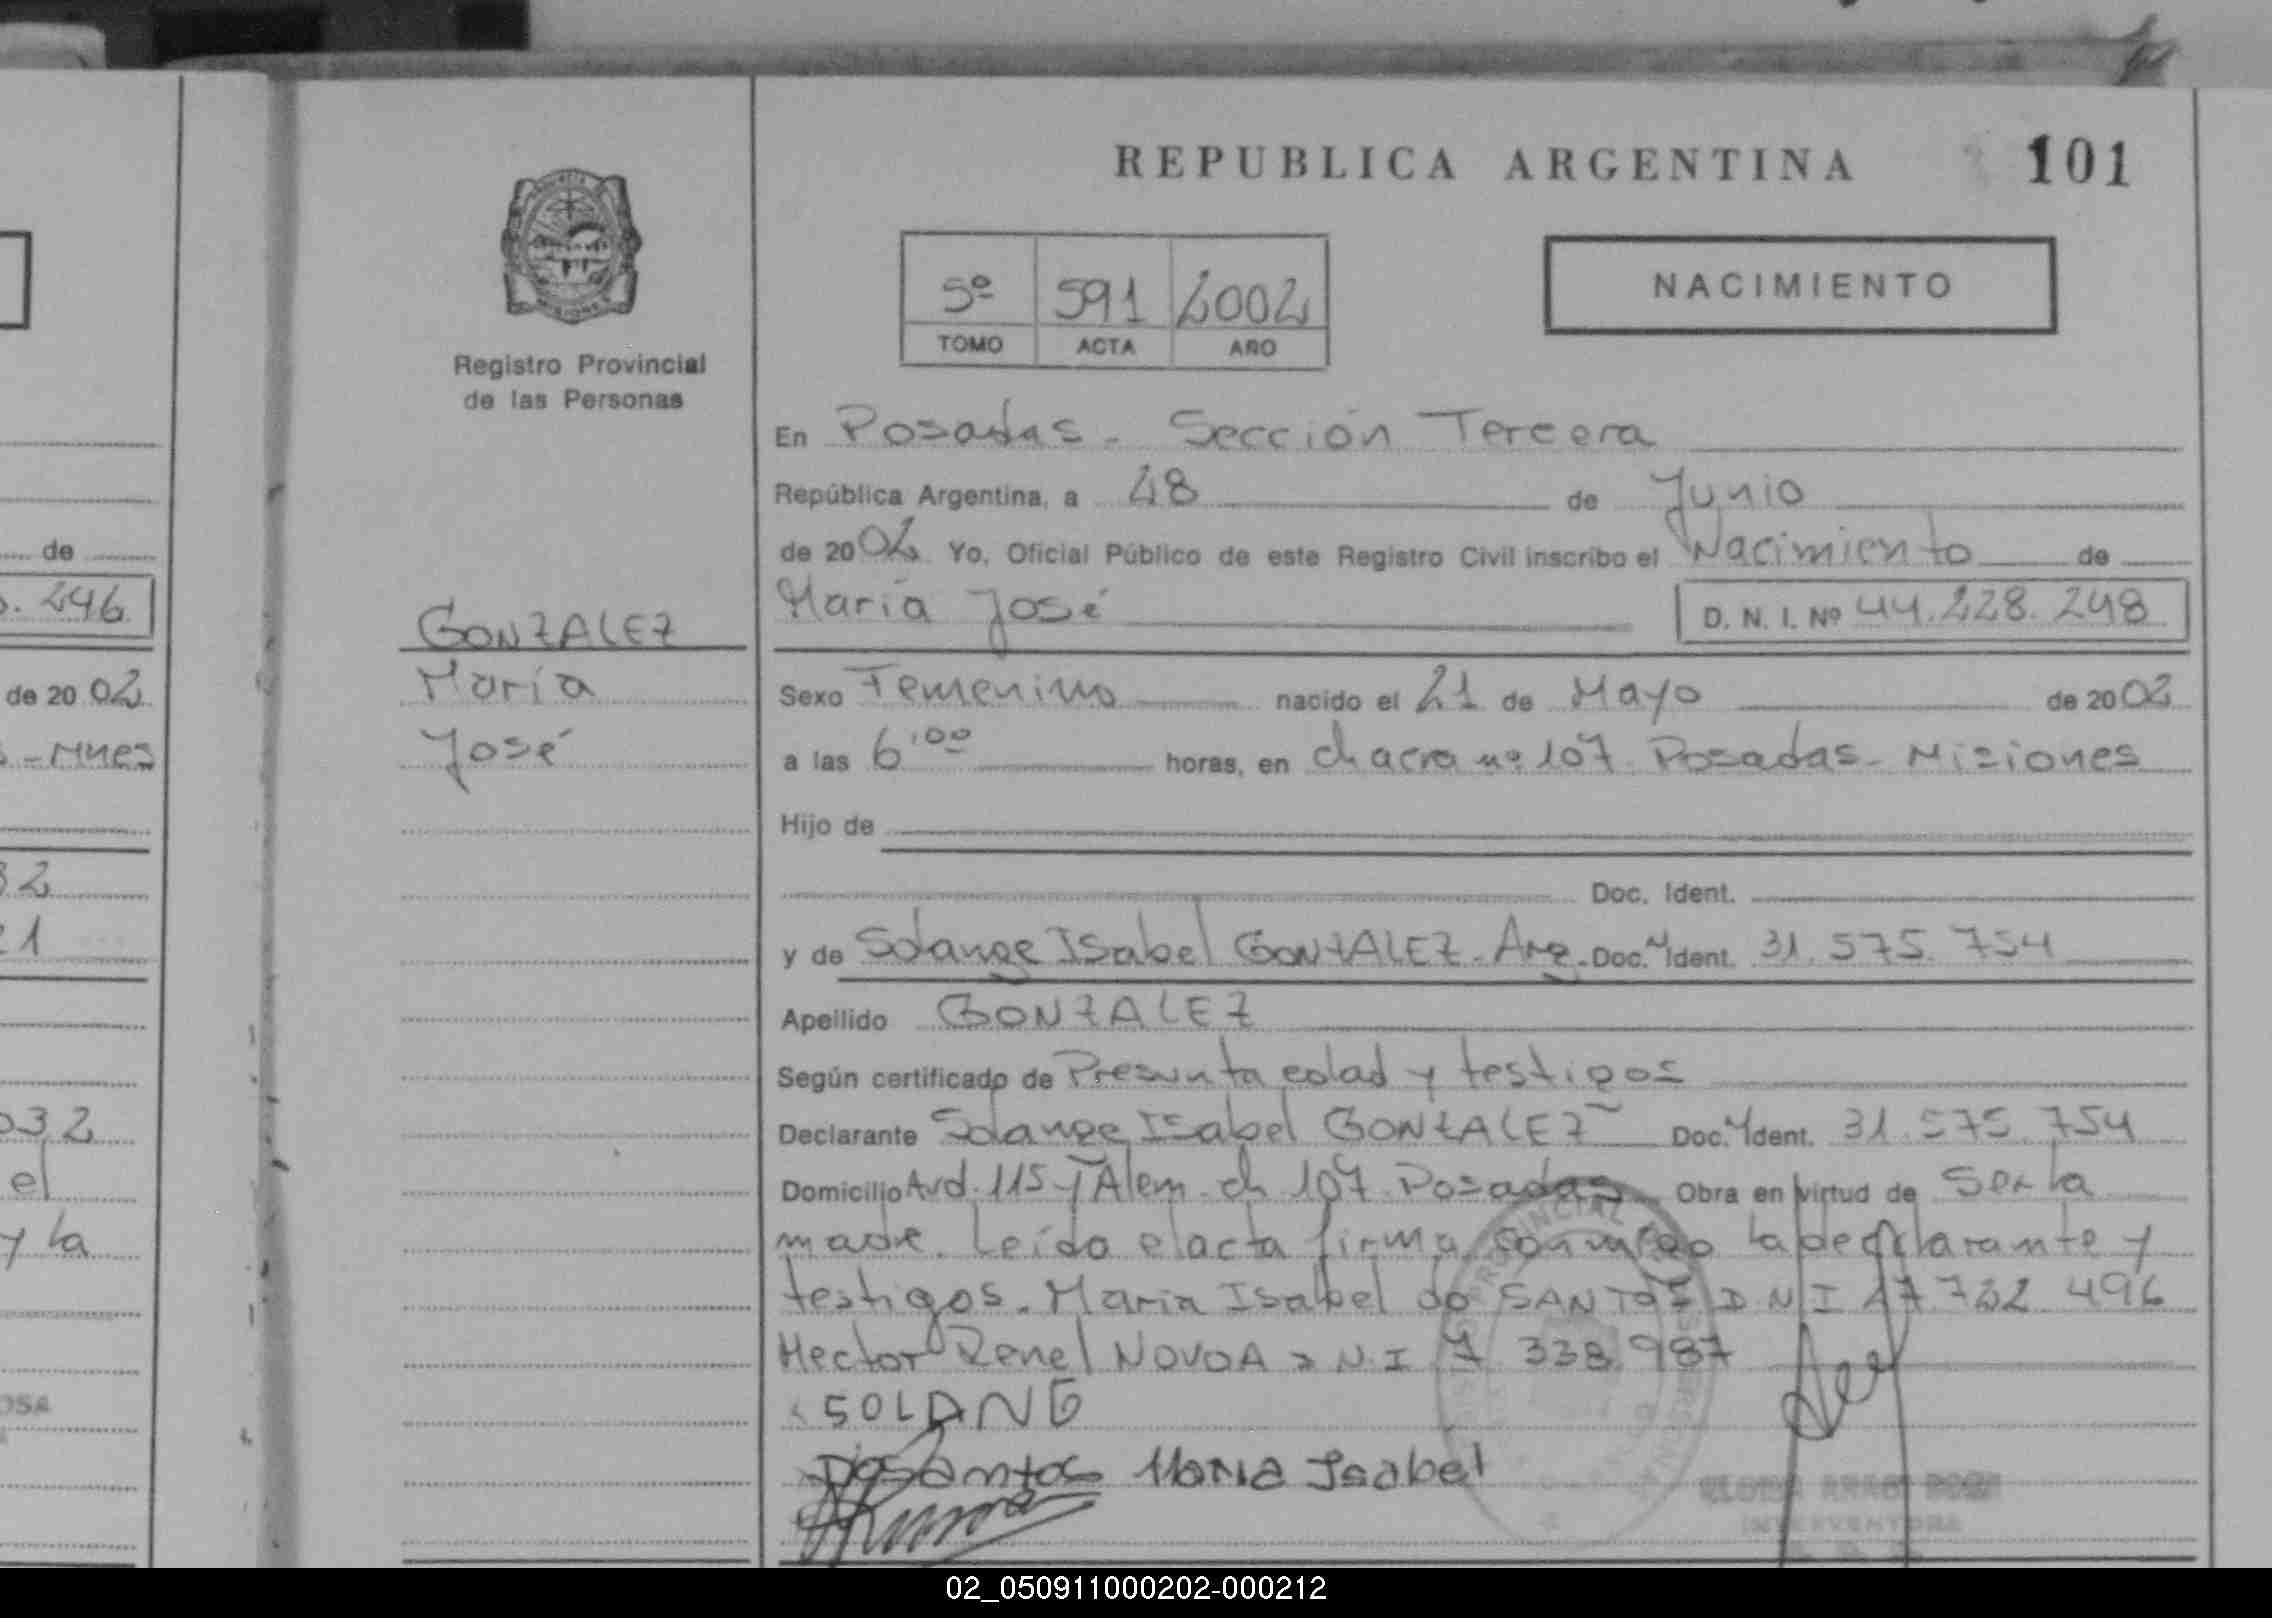 REPUBLICA ARGENTINA 101
5º 591 2002
TOMO ACTA AÑO
NACIMIENTO
Registro Provincial
de las Personas
En Posadas - Sección Tercera
República Argentina, a 28 de Junio
de 2002 Yo, Oficial Público de este Registro Civil inscribo el Nacimiento de
María José D. N. I. Nº 44.228.248
GONZALEZ
María
José
Sexo Femenino nacido el 21 de Mayo de 2002
a las 6,00 horas, en chacra nº 107 Posadas - Misiones
Hijo de
Doc. Ident.
y de Solange Isabel GONZALEZ - Arg. Doc. Ident. 31.575.754
Apellido GONZALEZ
Según certificado de Presunta edad y testigos
Declarante Solange Isabel GONZALEZ Doc. Ident. 31.575.754
Domicilio Avd. 115 y Alem ch 107 Posadas Obra en virtud de Ser la
madre. Leído el acta firma conmigo la declarante y
testigos. Maria Isabel do SANTOS D N I 27.732 496
Hector Renel NOVOA D N.I 7 338 987
SOLANG
DosSantos Maria Isabel
INTERVENTORA
de
246
de 20 02
-Mnes
32
21
032
el
y la
OSA
02_050911000202-000212